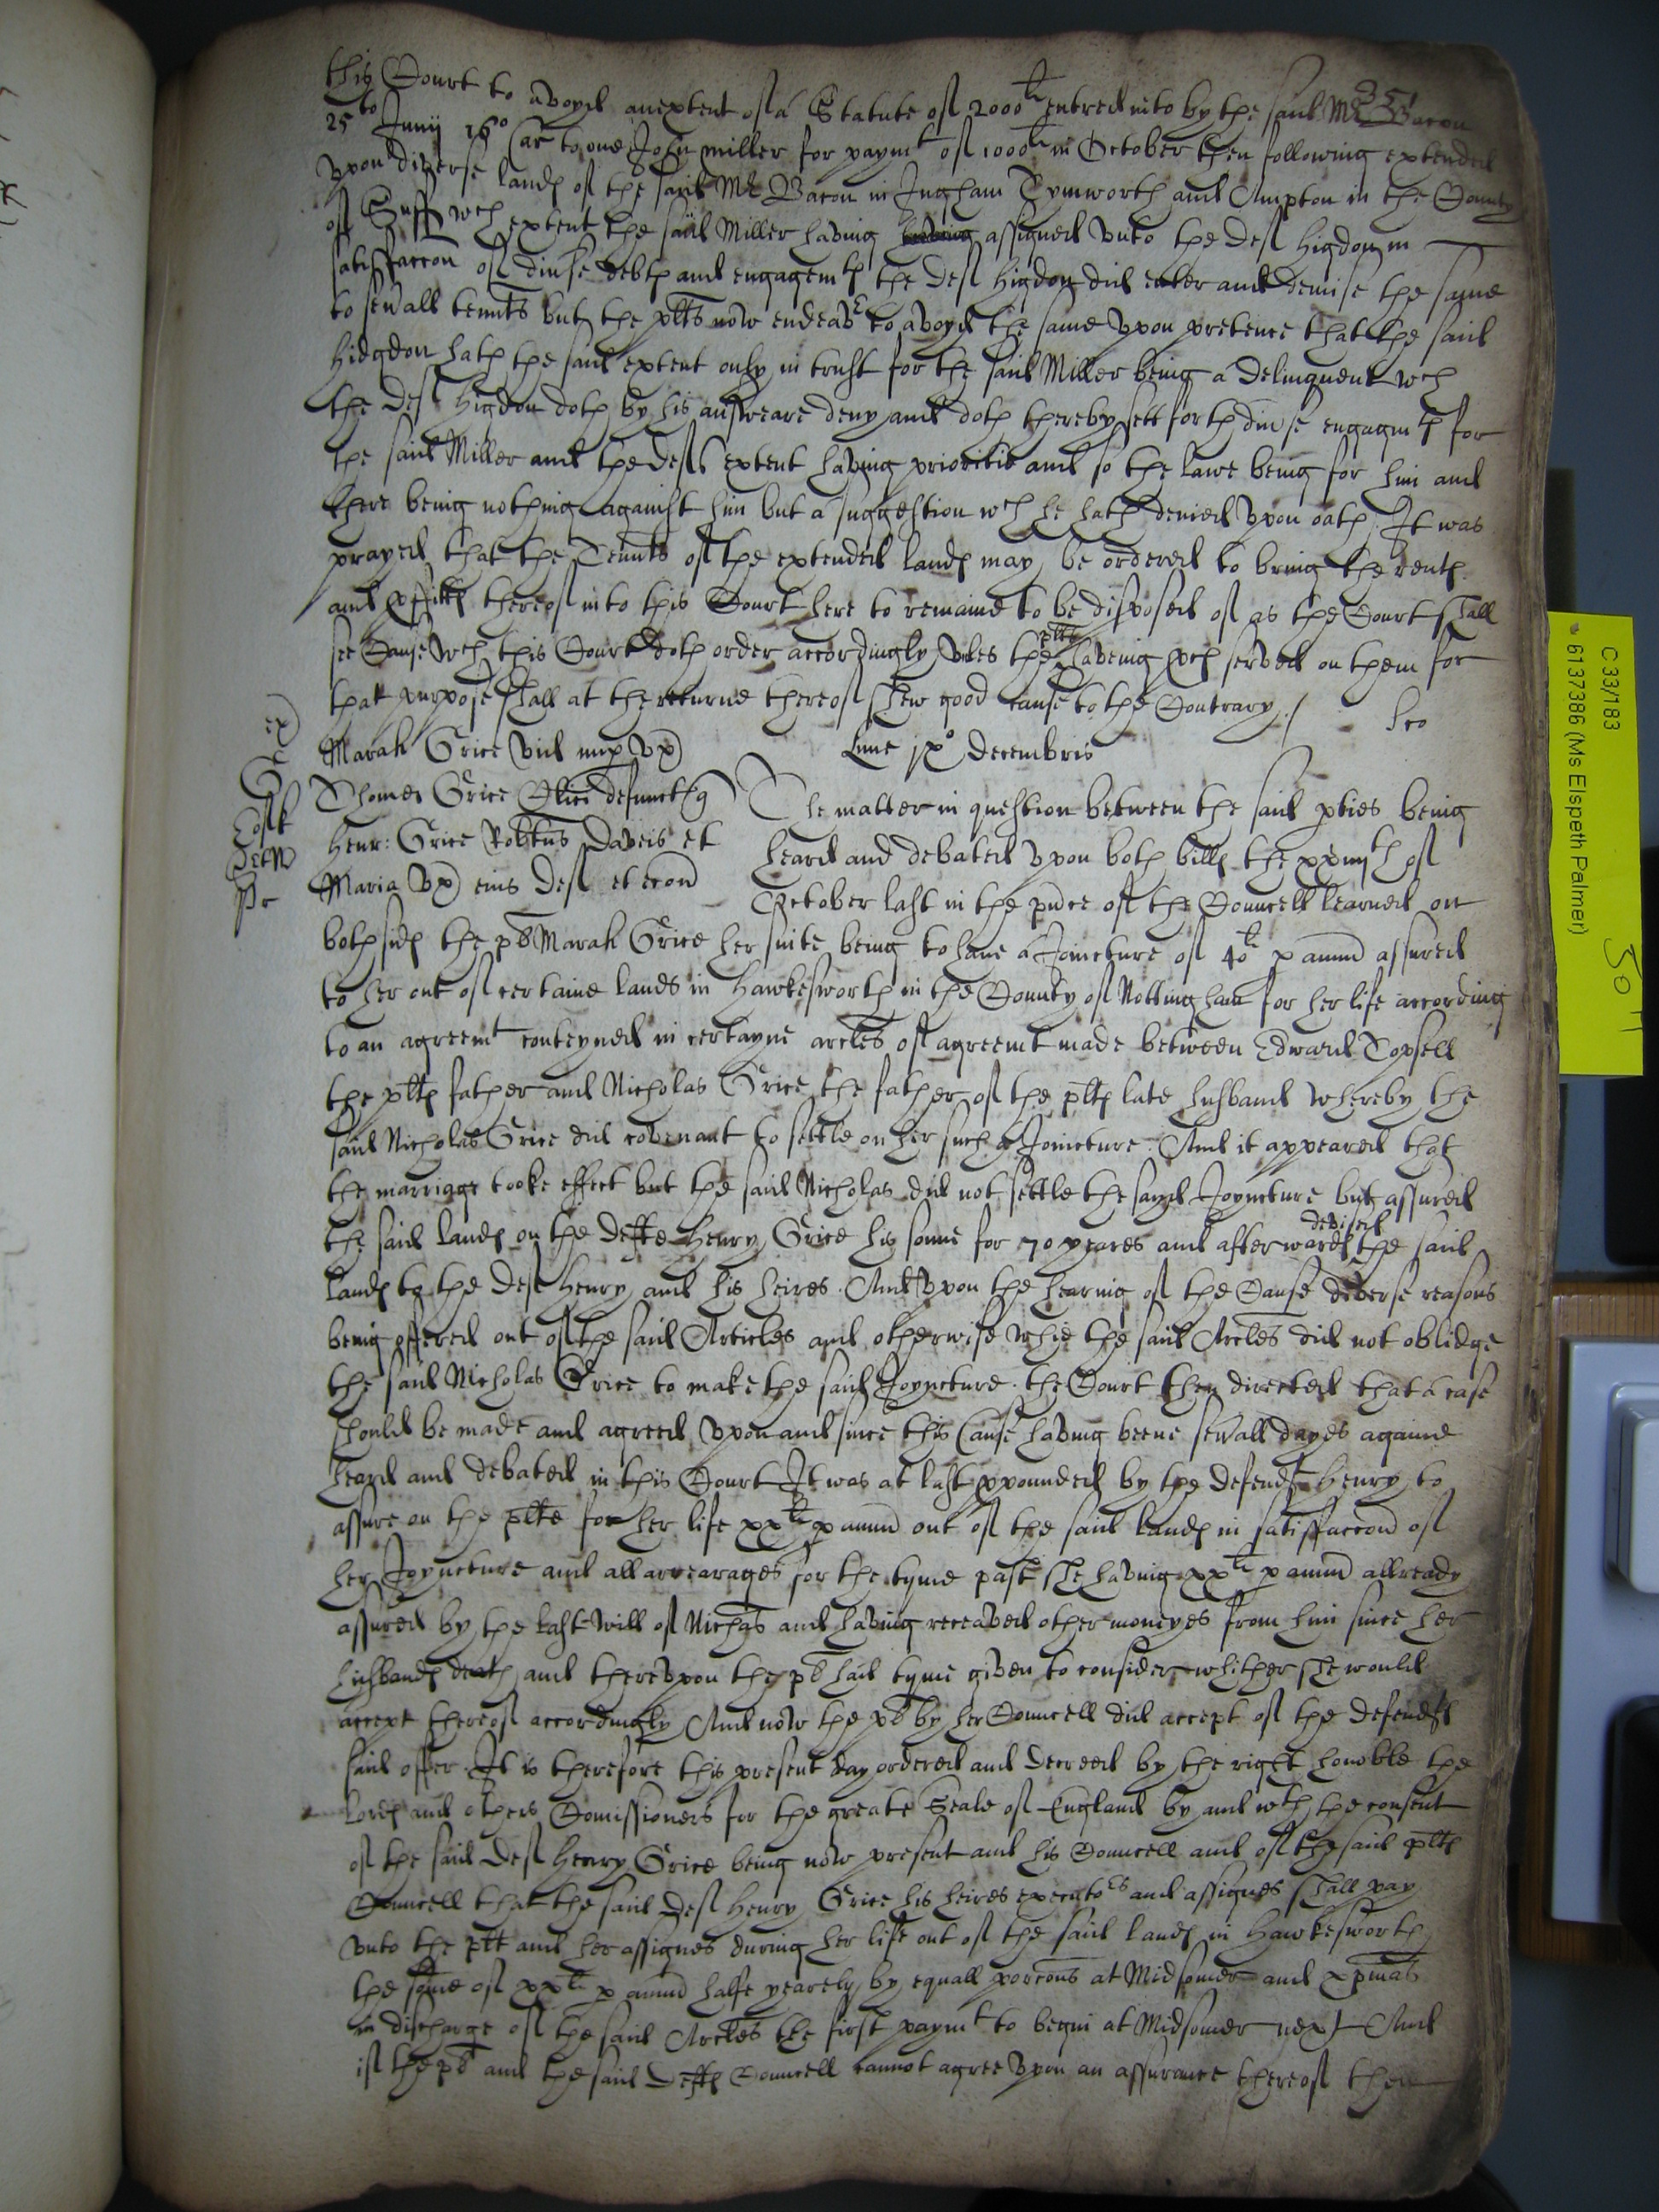 351
this Court to avoyd an extent of a Statute of 2000li entred into by the said Mr Bacon
25to Junij 16o Car to one John Miller for paymt of 1000li in October then following extended
vpon diverse lands of the said Mr Bacon in Ingham Tymworth and Ampton in the County
of Suff wch extent the said Miller having assigned vnto the Def Higdon in
satisfaccon of divse debts and engagemts the Def Higdon did enter and demise the same
to seuall tennts but the plts now endeavr to avoyd the same vpon pretence that the said
Hidgdon hath the said extent only in trust for the said Miller being a delinquent wch
the Def Higdon doth by his answeare deny and doth thereby sett forth divse engagmts for
the said Miller and the Defts extent having prioritie and so the lawe being for him and
there being nothing against him but a suggestion wch he hath denied vpon oath. It was
prayed that the Tennts of the extended lands may be ordered to bring the rents
and pfitts thereof into this Court here to remaine to be disposed of as the Court shall
see Cause wch this Court doth order accordingly vnles the plts haveing pces served on them for
that purpose shall at the returne thereof shew good cause to the Contrary./
Marah Grice vid nup vx Lune jxo Decembris
Thomes Grice defunct q
The matter in question between the said pties being
Henr: Grice Robtus Daveis et
heard and debated vpon both bills the xxiiijth of
Maria vx eius Def et econ
October last in the pnce of the Councell learned on
both sids the pl Marah Grice her suite being to have a Joincture of 40li p annu assured
to her out of certaine lands in Hawkesworth in the County of Nottingham for her life according
to an agreemt conteyned in certayne arcles of agreemt made between Edward Topsell
the plts father and Nicholas Grice the father of the plts late husband whereby the
said Nicholas Grice did covenant to settle on her such a Joincture. And it appeared that
the marriage tooke effect but the said Nicholas did not settle the sayd Joyncture but assured
the said lands on the Defte Henry Grice his sonne for 70 yeares and afterwards devised the said
lands to the Def Henry and his heires. And vpon the hearing of the Cause deverse reasons
being offered out of the said Articles and otherwise whie the said Arcles did not oblidge
the said Nicholas Grice to make the said Joyncture. the Court then directed that a case
should be made and agreed vpon and since this Cause having beene seuall dayes againe
heard and debated in this Court It was at last ppounded by the defendt Henry to
assure on the plte for her life xxli p annu out of the said lands in satisfaccon of
her Joyncture and all arrearages for the tyme past she having xxli p annu allready
assured by the last will of Nichas and having receaved other moneyes from him since her
husbands death and therevpon the pl had tyme given to consider whither she would
accept thereof accordingly And now the pl by her Councell did accept of the defendts
said offer. It is therefore this present day ordered and decreed by the right honoble the
lords and others Comissioners for the greate Seale of England by and wth the consent
of the said Def Henry Grice being now present and his Councell and of the said plts
Councell that the said Def Henry Grice his heires executors and assignes shall pay
vnto the plt and her assignes during her life out of the said lands in Hawkesworth
the some of xxli p annu halfe yearely by equall porcons at Midsomer and xpmas
in discharge of the said Arcles the first paymt to begin at Midsomer next And
if the pl and the said Defts Councell cannot agree vpon an assurance thereof then
C 33/183
6137386 (Ms Elspeth Palmer)